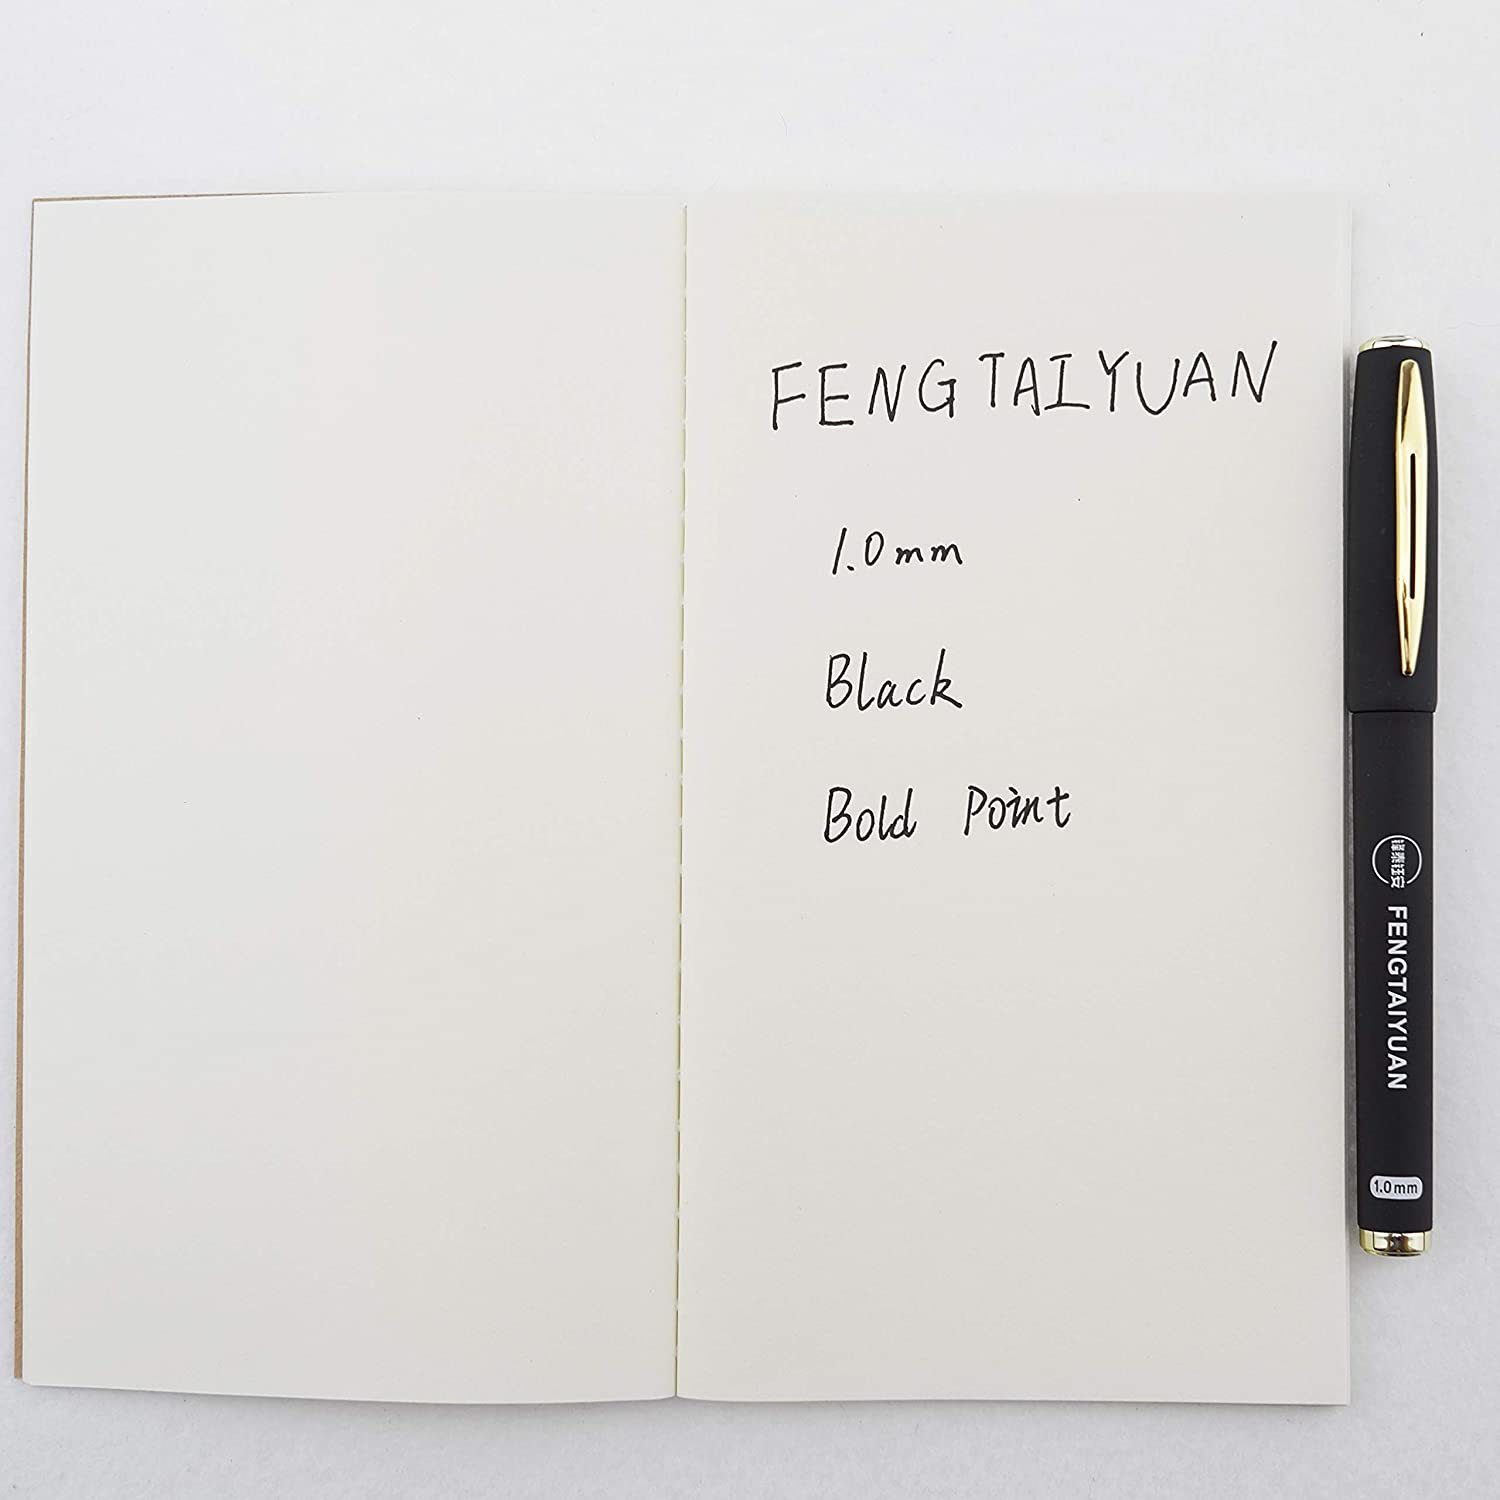 FENGTAIYUAN
1.0mm
Black
Bold Point
FENGTAIYUAN
1.0mm